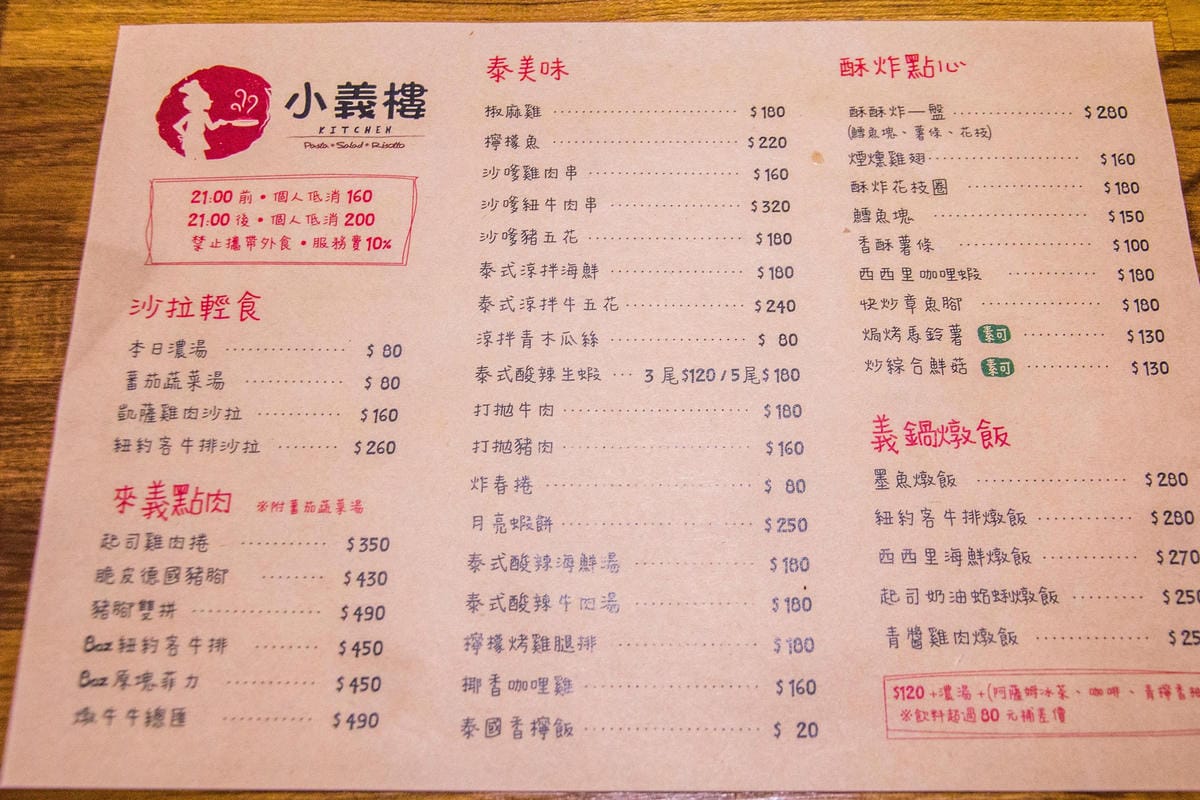 小義樓
KITCHEN
Pasta • Salad • Risotto
21:00 前 • 個人低消 160
21:00 後 • 個人低消 200
禁止攜帶外食 • 服務費 10%
沙拉輕食
本日濃湯 $ 80
蕃茄蔬菜湯 $ 80
凱薩雞肉沙拉 $160
紐約客牛排沙拉 $260
來義點肉 ※附蕃茄蔬菜湯
起司雞肉捲 $350
脆皮德國豬腳 $430
豬腳雙拼 $490
8oz 紐約客牛排 $450
8oz 厚塊菲力 $450
燉牛牛總匯 $490
泰美味
椒麻雞 $180
檸檬魚 $220
沙嗲雞肉串 $160
沙嗲紐牛肉串 $320
沙嗲豬五花 $180
泰式涼拌海鮮 $180
泰式涼拌牛五花 $240
涼拌青木瓜絲 $ 80
泰式酸辣生蝦 3 尾$120 / 5 尾$180
打拋牛肉 $180
打拋豬肉 $160
炸春捲 $ 80
月亮蝦餅 $250
泰式酸辣海鮮湯 $180
泰式酸辣牛肉湯 $180
檸檬烤雞腿排 $180
椰香咖哩雞 $160
泰國香檸飯 $ 20
酥炸點心
酥酥炸一盤 $280
(鱈魚塊、薯條、花枝)
煙燻雞翅 $160
酥炸花枝圈 $180
鱈魚塊 $150
香酥薯條 $100
西西里咖哩蝦 $180
快炒章魚腳 $180
焗烤馬鈴薯 素可 $130
炒綜合鮮菇 素可 $130
義鍋燉飯
墨魚燉飯 $280
紐約客牛排燉飯 $280
西西里海鮮燉飯 $270
起司奶油蛤蜊燉飯 $250
青醬雞肉燉飯 $25
$120 +濃湯 +(阿薩姆冰茶、咖啡、青檸香
※飲料超過 80 元補差價